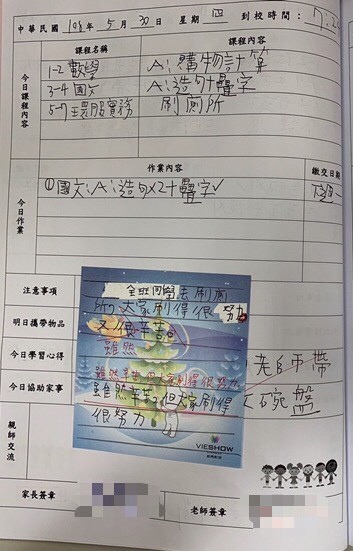 中華民國 108 年 5 月 30 日 星期 四 到校時間： 7:2
課程名稱 課程內容
今日課程內容
1-2 數學 A：購物計算
3-4 國文 A：造句+疊字
5-7 環服實務 刷廁所
作業內容 繳交日期
今日作業
①國文：A：造句x2+疊字✓
注意事項
明日攜帶物品
今日學習心得
今日協助家事
親師交流
全班同學去刷廁
所，大家刷得很努力
又很辛苦。
雖然
雖然辛苦，但大家刷得很努力
雖然辛苦，但大家刷得
很努力
VIESHOW
老師帶
碗盤
家長簽章
老師簽章